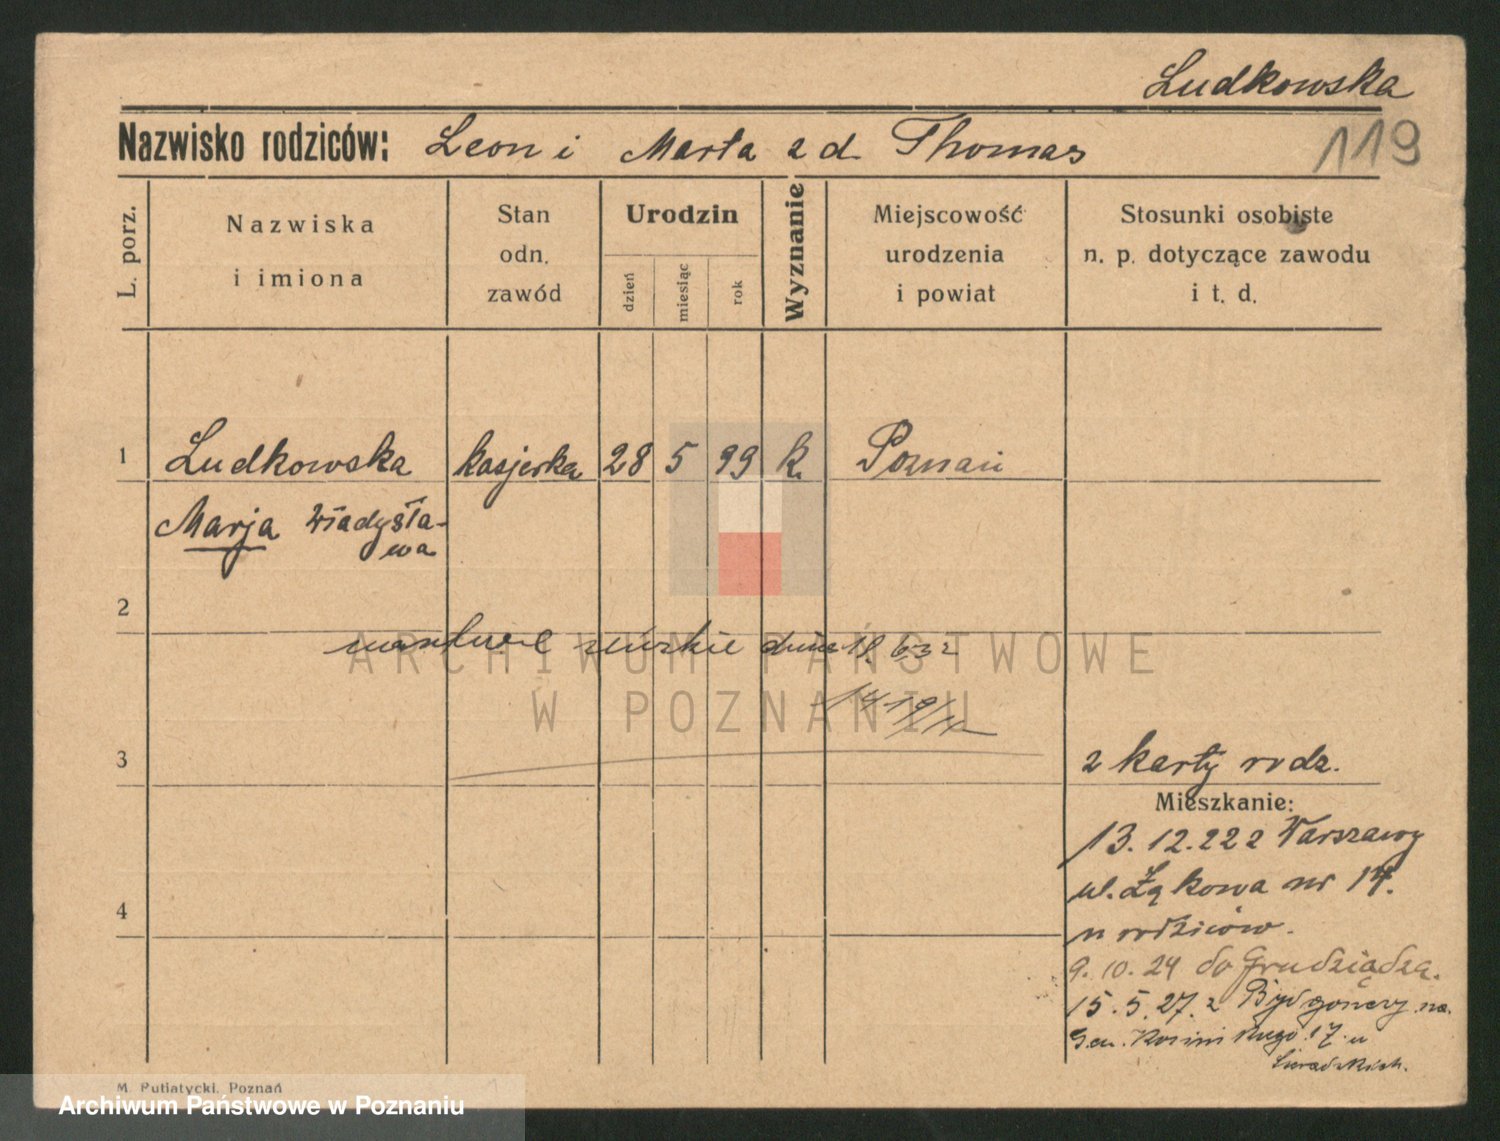 Ludkowska
119
Nazwisko rodziców: Leon i Marta z d. Thomas
L. porz.
Nazwiska
i imiona
Stan
odn.
zawód
Urodzin
dzień
miesiąc
rok
Wyznanie
Miejscowość
urodzenia
i powiat
Stosunki osobiste
n. p. dotyczące zawodu
i t. d.
1 Ludkowska kasjerka 28 5 99 k. Poznań
Marja Władysła-
wa
2
dnia 18. 6. 32
ARCHIWUM PAŃSTWOWE
W POZNANIU
3
2 karty rodz.
Mieszkanie:
13. 12. 22 z Warszawy
ul. Łąkowa nr 14.
u rodziców.
4
9. 10. 24 do Grudziądza.
15. 5. 27. z Bydgoszczy na
Gen. Kosińskiego 17 u
M. Putiatycki, Poznań
Archiwum Państwowe w Poznaniu